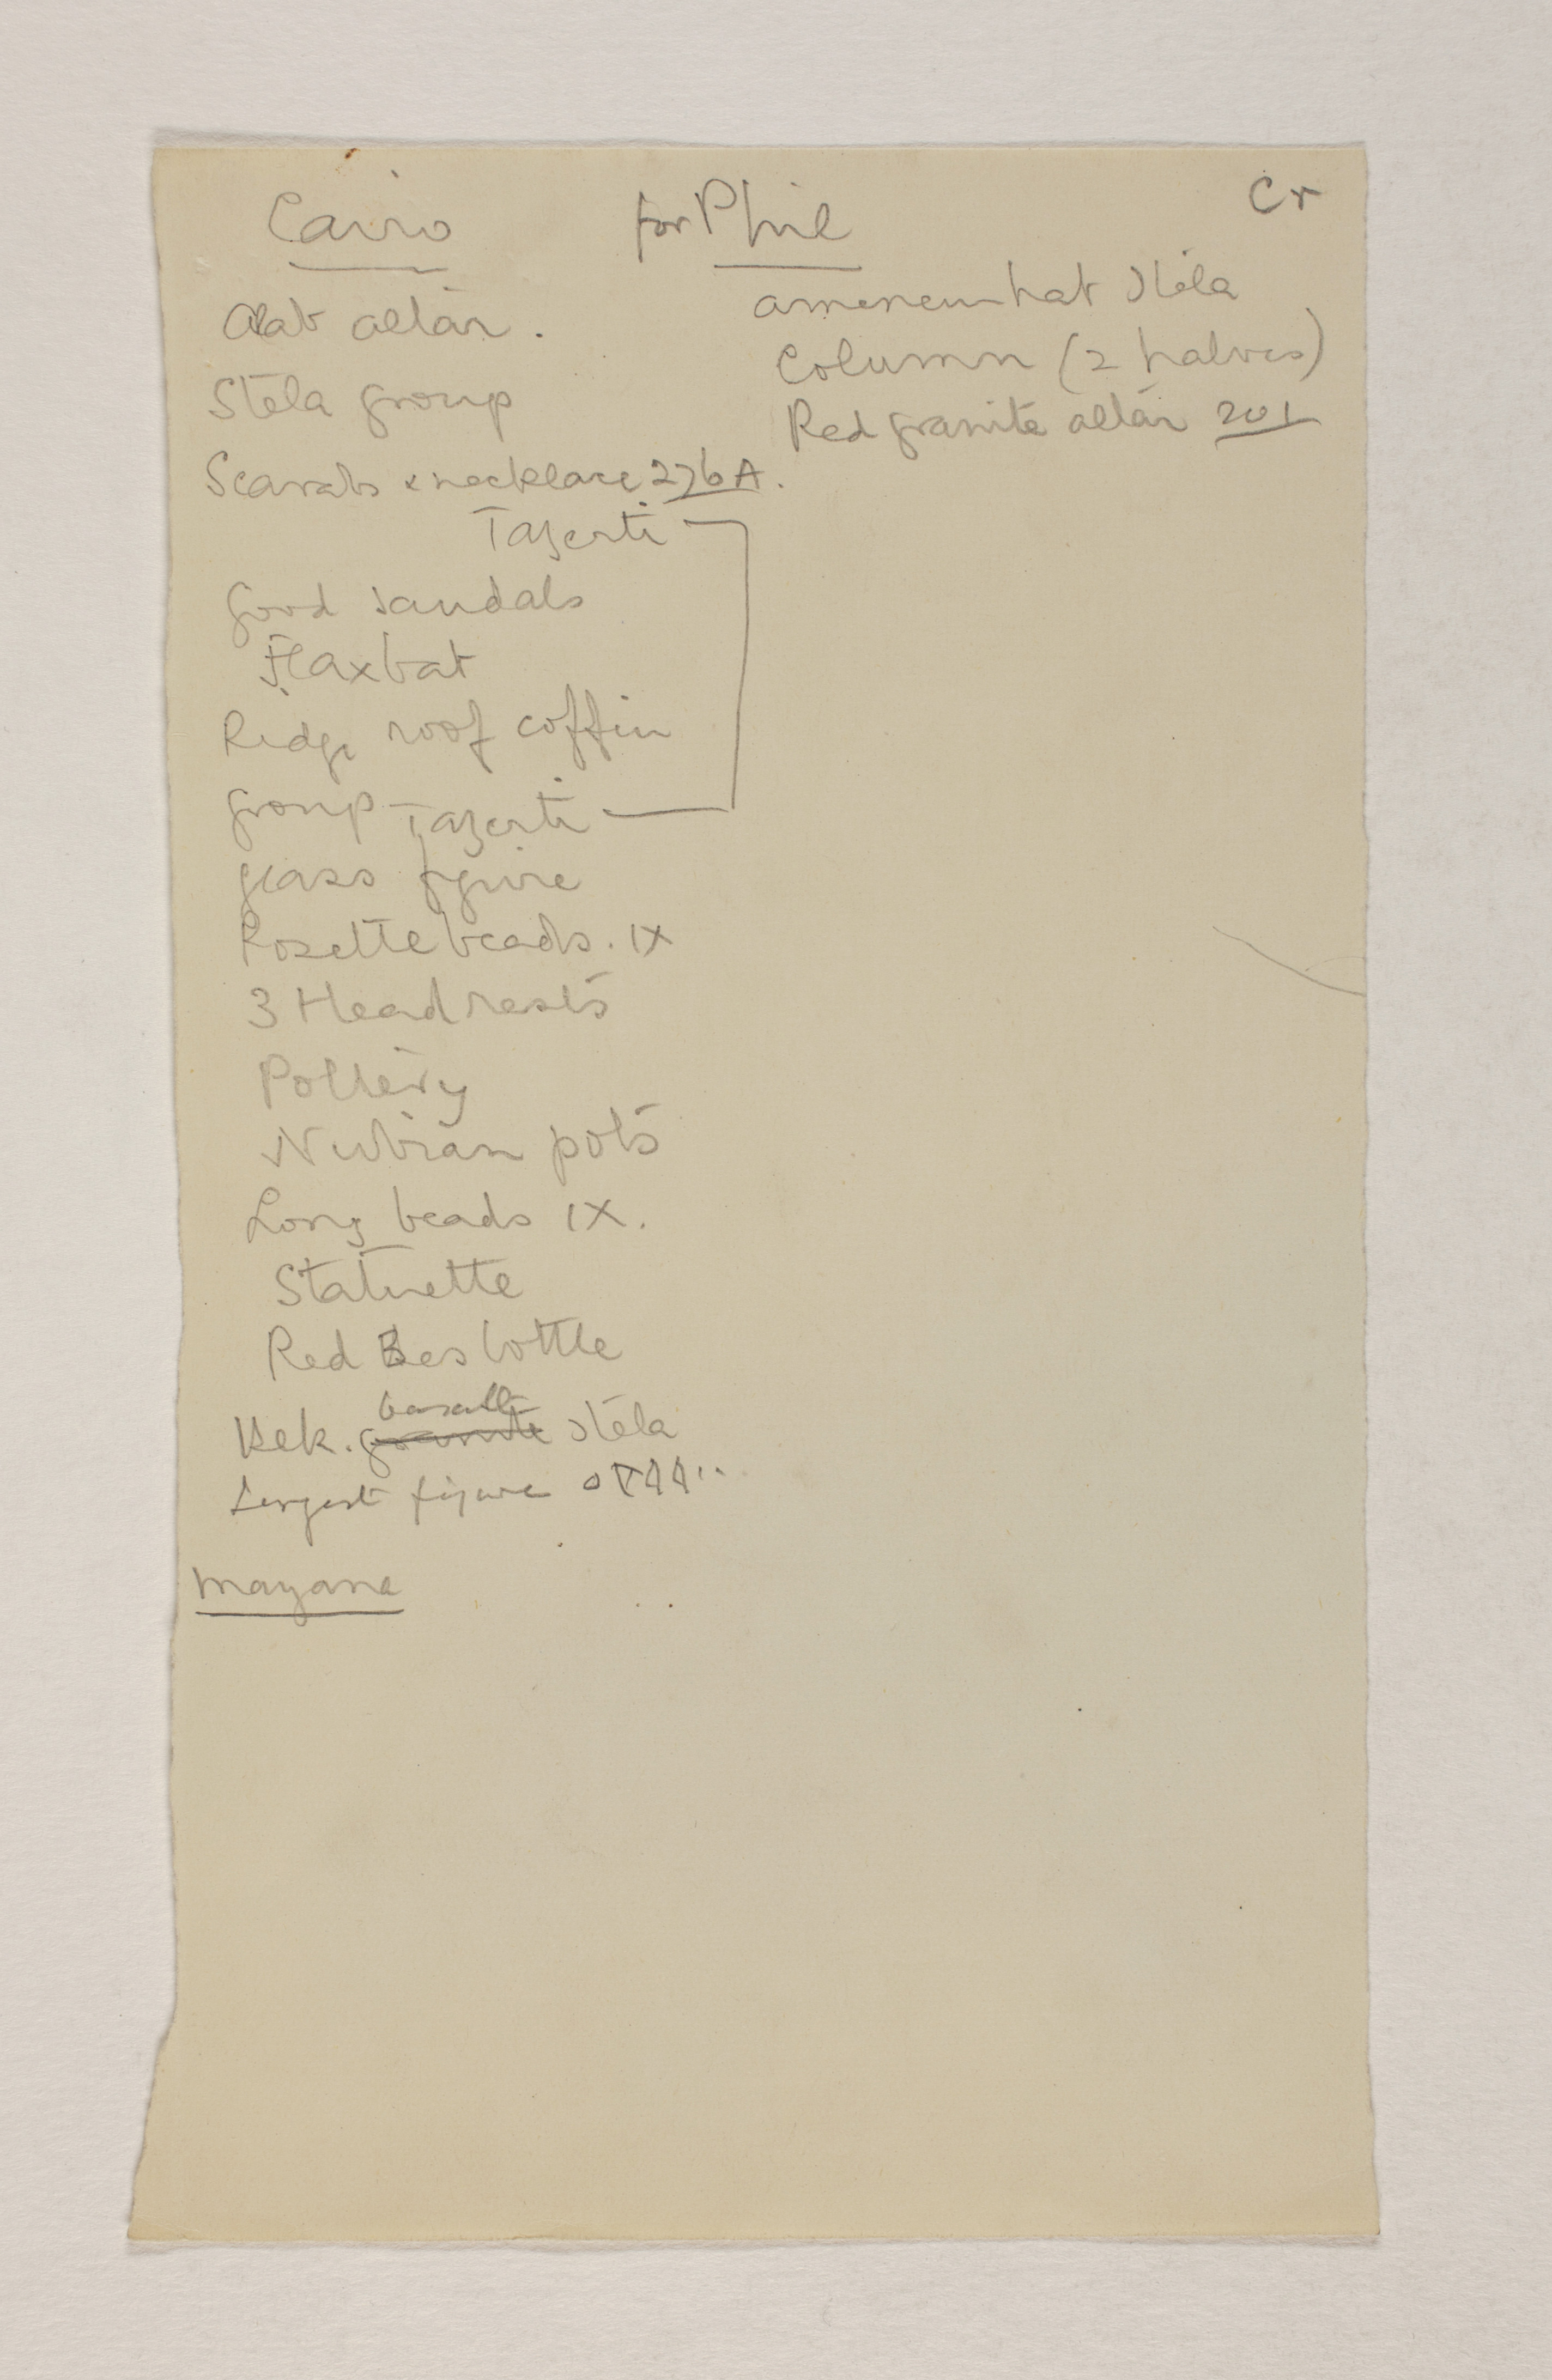 Cairo
Alab altar.
Stela group
Scarabs & necklace 276A.
Tazerti
good sandals
Flaxbat
Ridge roof coffin
group Tazerti
glass figure
Rosette beads. IX
3 Headrests
Pottery
Nubian pots
Long beads IX.
Statuette
Red Bes bottle
basalt
Hek. granite stela
Largest figure
Mayana
for Phil
Amenemhat Stela
Column (2 halves)
Red granite altar 201